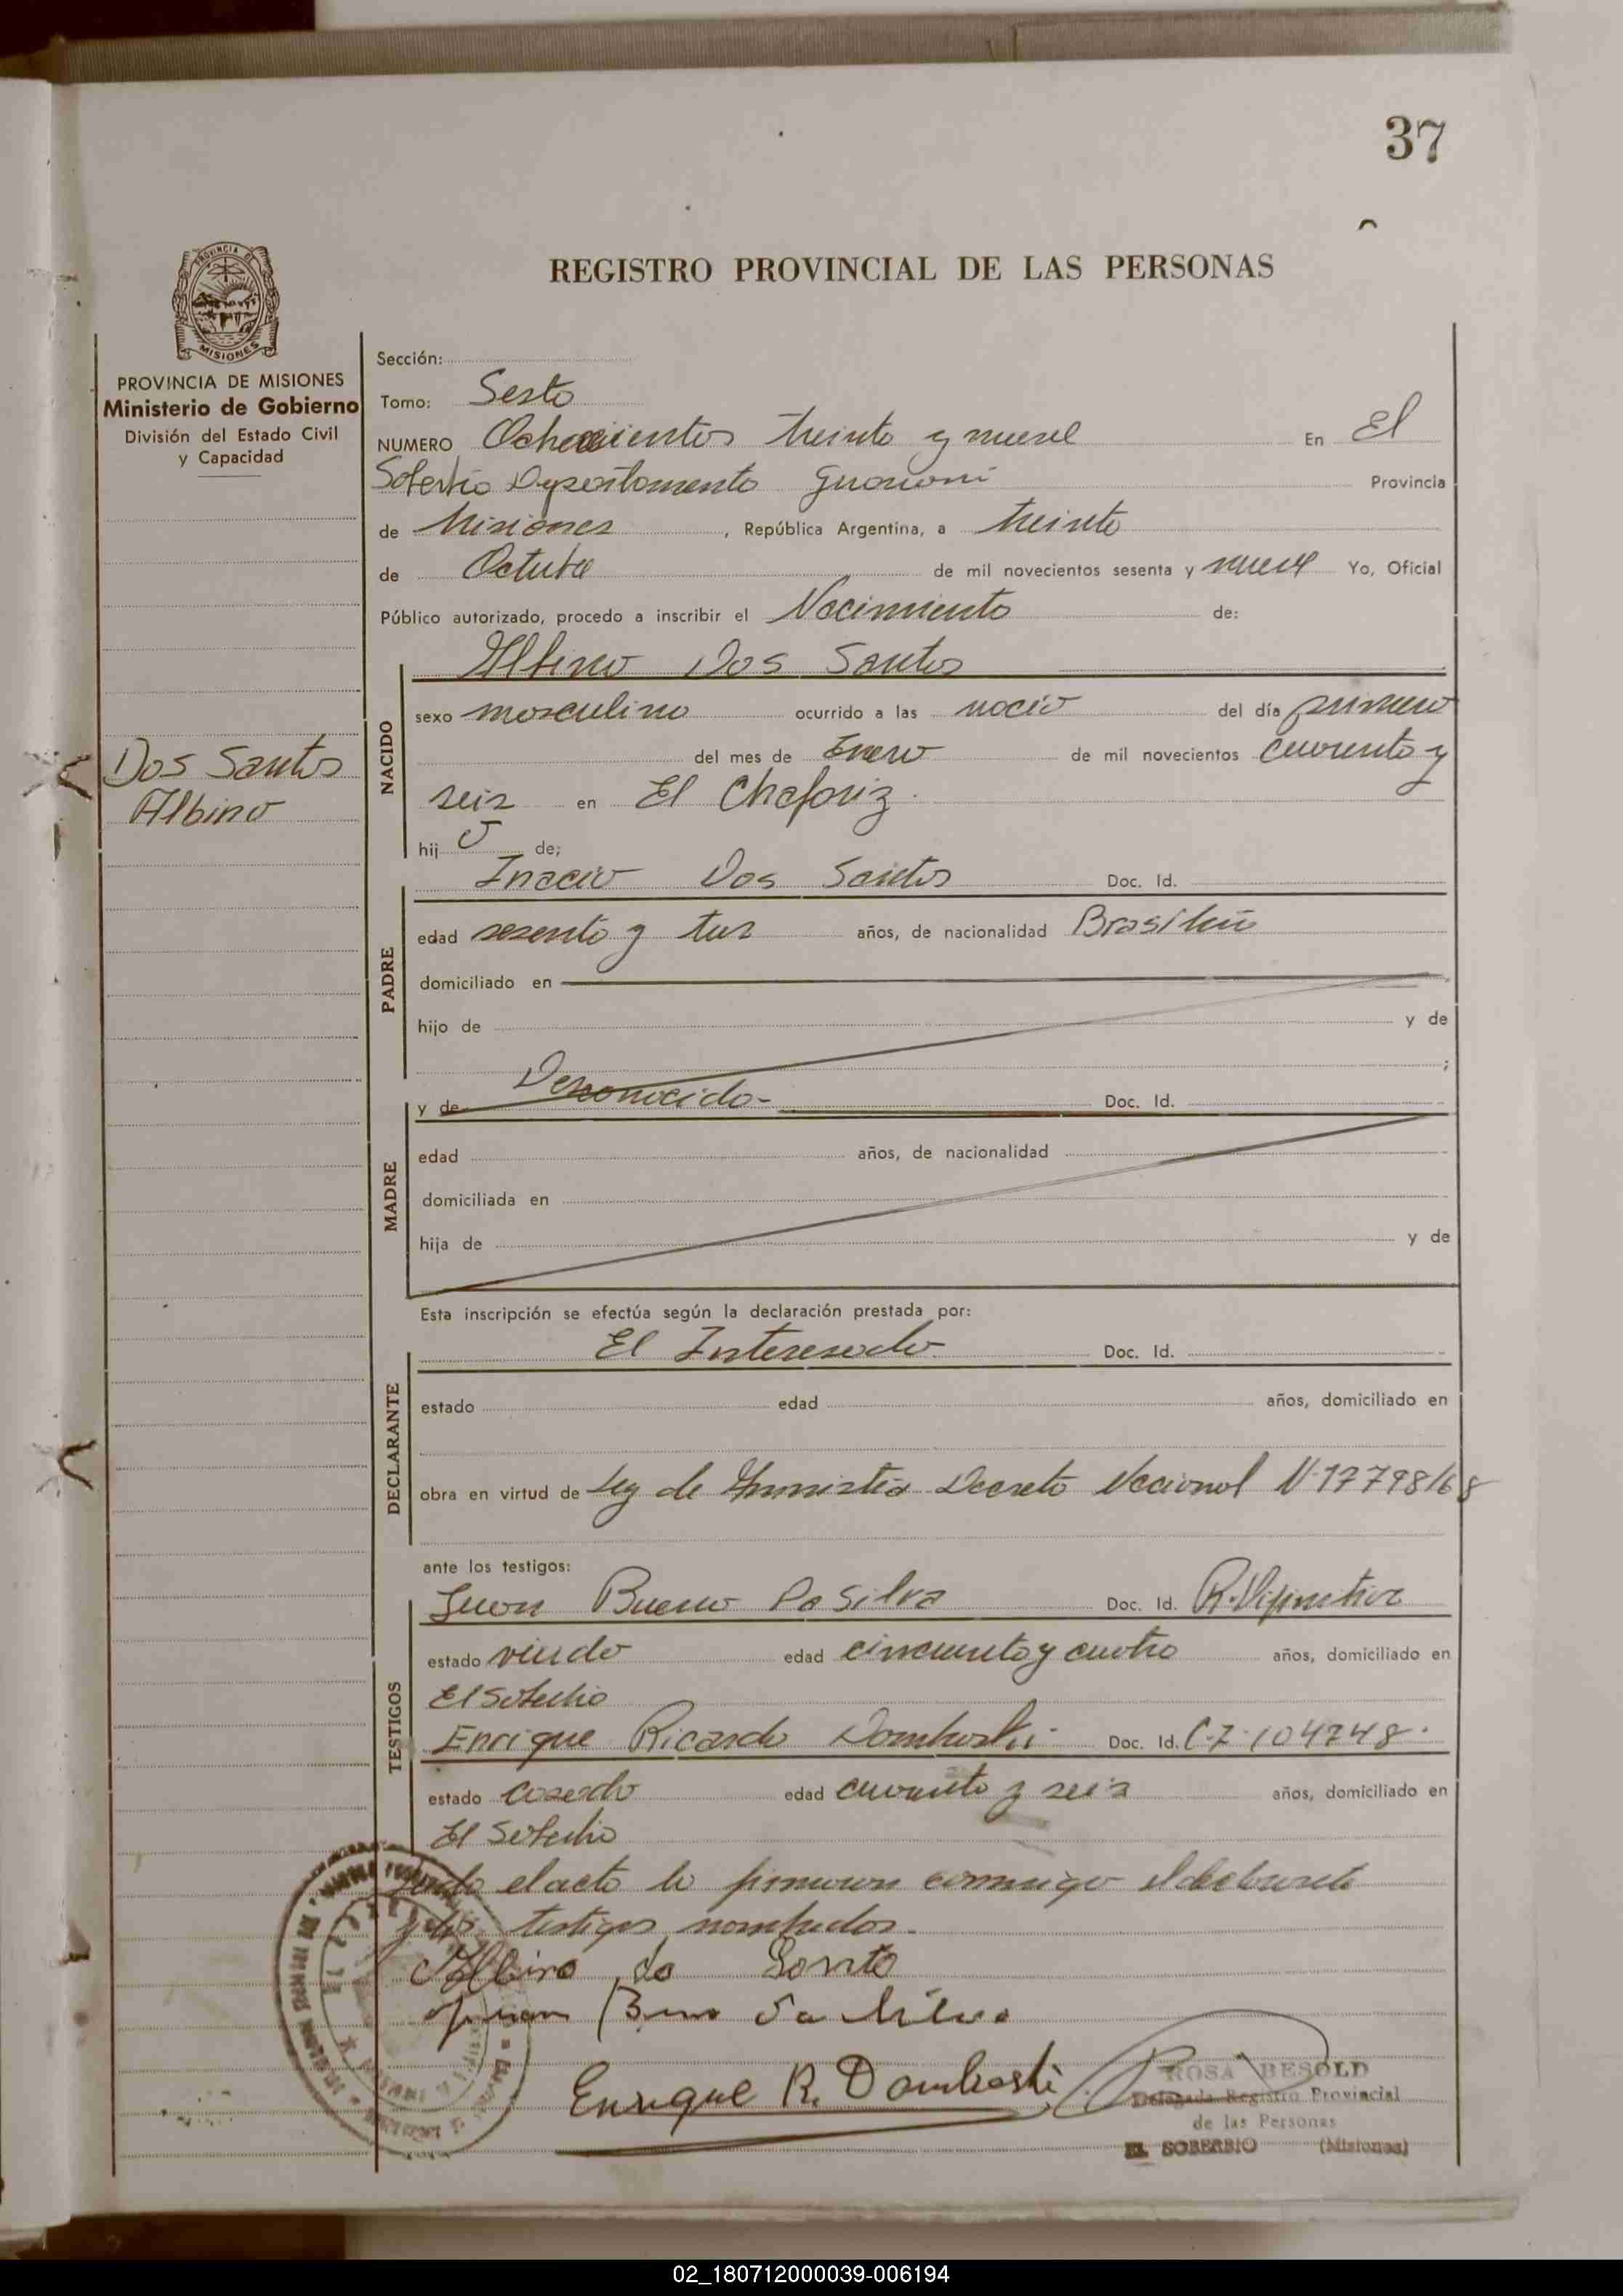 37
REGISTRO PROVINCIAL DE LAS PERSONAS
PROVINCIA DE
MISIONES
PROVINCIA DE MISIONES
Ministerio de Gobierno
División del Estado Civil
y Capacidad
Dos Santos
Albino
Sección:
Tomo: Sesto
NUMERO Ochocientos treinta y nueve En El
Soberbio Departamento Guarani Provincia
de Misiones, República Argentina, a treinta
de Octubre de mil novecientos sesenta y nueve Yo, Oficial
Público autorizado, procedo a inscribir el Nacimiento de:
Albino Dos Santos
NACIDO
sexo masculino ocurrido a las nació del día primero
del mes de Enero de mil novecientos cuarenta y
seis en El Chafariz.
hijo de;
Inacio Dos Santos Doc. Id.
PADRE
edad sesenta y tres años, de nacionalidad Brasileño
domiciliado en
hijo de y de
;
y de Desconocido- Doc. Id.
MADRE
edad años, de nacionalidad
domiciliada en
hija de y de
Esta inscripción se efectúa según la declaración prestada por:
El Interesado Doc. Id.
DECLARANTE
estado edad años, domiciliado en
obra en virtud de Ley de Amnistia Decreto Nacional Nº 17798/68
ante los testigos:
Juan Bueno Da Silva Doc. Id.
TESTIGOS
estado viudo edad cincuenta y cuatro años, domiciliado en
El Soberbio
Enrique Ricardo Dombroski Doc. Id. C.I. 104748.
estado casado edad cuarenta y seis años, domiciliado en
El Soberbio
el acto lo firmaron conmigo el declarante
y los testigos nombrados.
Albino do Santo
Juan Bueno Da Silva
Enrique R. Dombroski
ROSA BESOLD
Delegada Registro Provincial
de las Personas
EL SOBERBIO (Misiones)
02_180712000039-006194